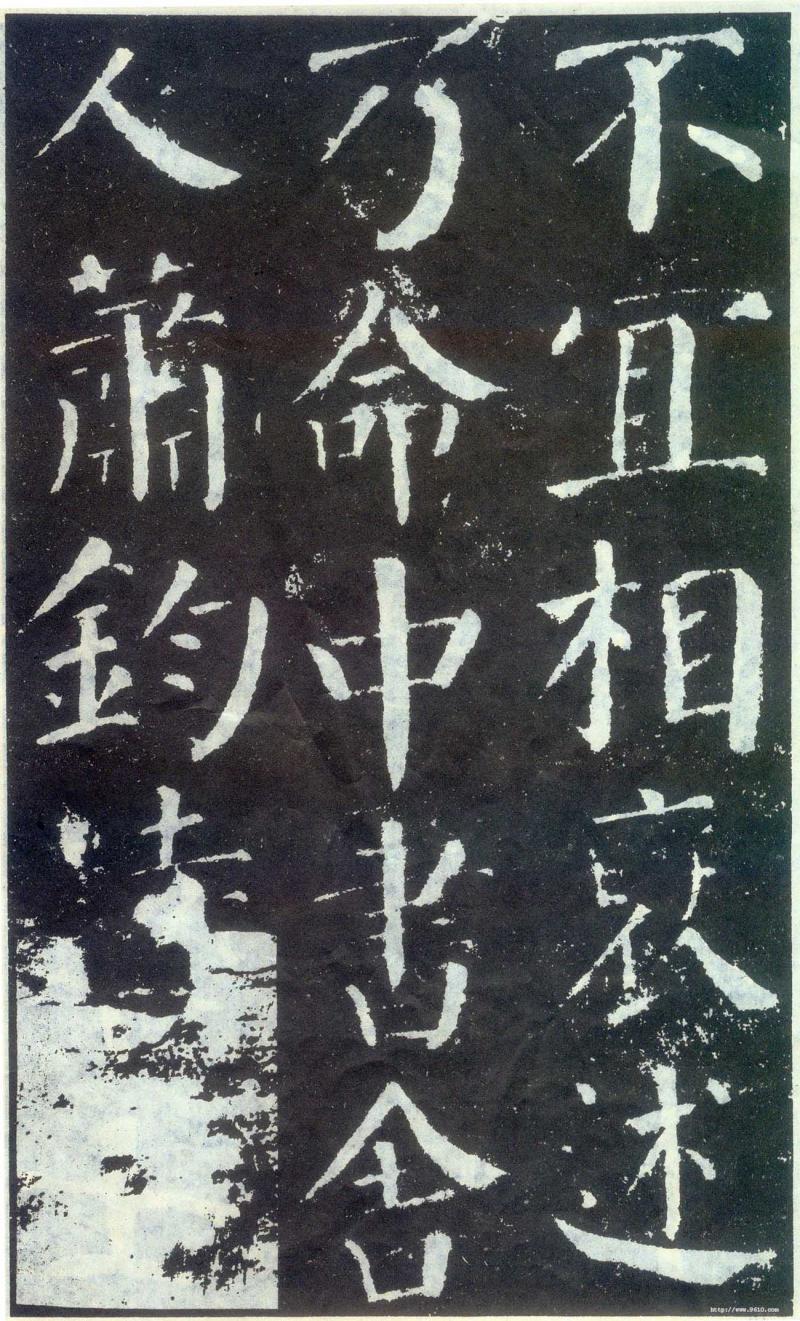 不宜相裒述
乃命中書舍
人蕭鈞
http://www.9610.com